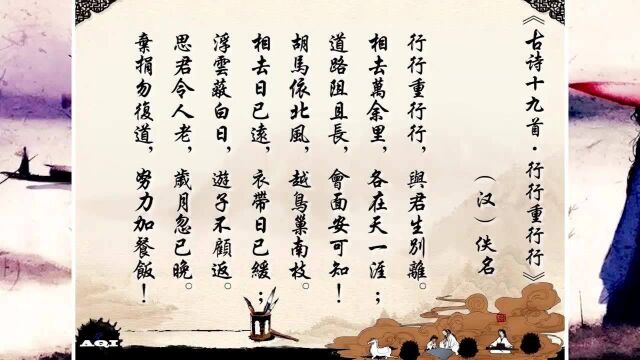 《古诗十九首·行行重行行》
（汉）佚名
行行重行行，與君生別離。
相去萬余里，各在天一涯；
道路阻且長，會面安可知！
胡馬依北風，越鳥巢南枝。
相去日已遠，衣帶日已緩；
浮雲蔽白日，遊子不顧返。
思君令人老，歲月忽已晚。
棄捐勿復道，努力加餐飯！
AQI